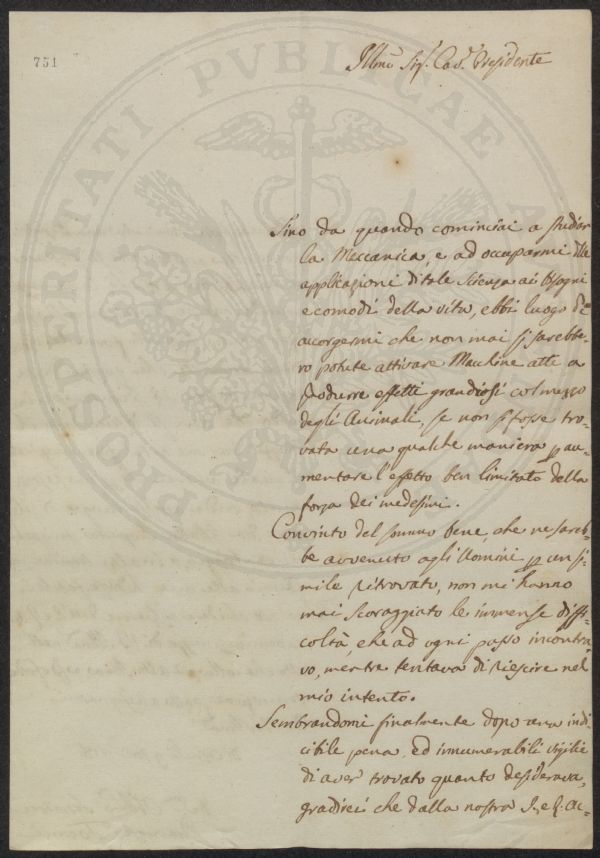 751
Illmo Sigr. Cavr. Presidente
PROSPERITATI PVBLICAE A
Sino da quando cominciai a studiar
la Meccanica, e ad occuparmi delle
applicazioni di tale Scienza ai bisogni
e comodi della vita, ebbi luogo di
accorgermi che non mai si sarebbe-
ro potute attivare Macchine atte a
produrre effetti grandiosi col mezzo
degli Animali, se non si fosse tro-
vata una qualche maniera p au-
mentare l'effetto ben limitato della
forza dei medesimi.
Convinto del sommo bene, che ne sareb-
be avvenuto agli Uomini p un si-
mile ritrovato, non mi hanno
mai scoraggiato le immense diffi-
coltà, che ad ogni passo incontra-
vo, mentre tentava di riescire nel
mio intento.
Sembrandomi finalmente dopo una indi-
cibile pena, ed innumerabili vigilie
di aver trovato quanto desiderava,
gradirei che dalla nostra I. e R. Ac-